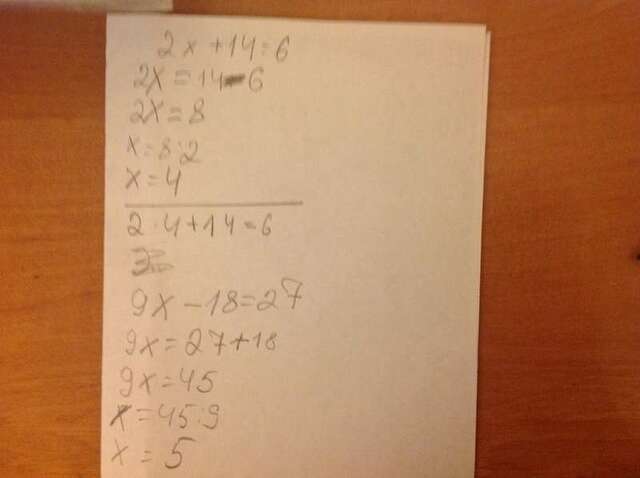 2x+14=6
2x=14-6
2x=8
x=8:2
x=4
2·4+14=6
9x-18=27
9x=27+18
9x=45
x=45:9
x=5